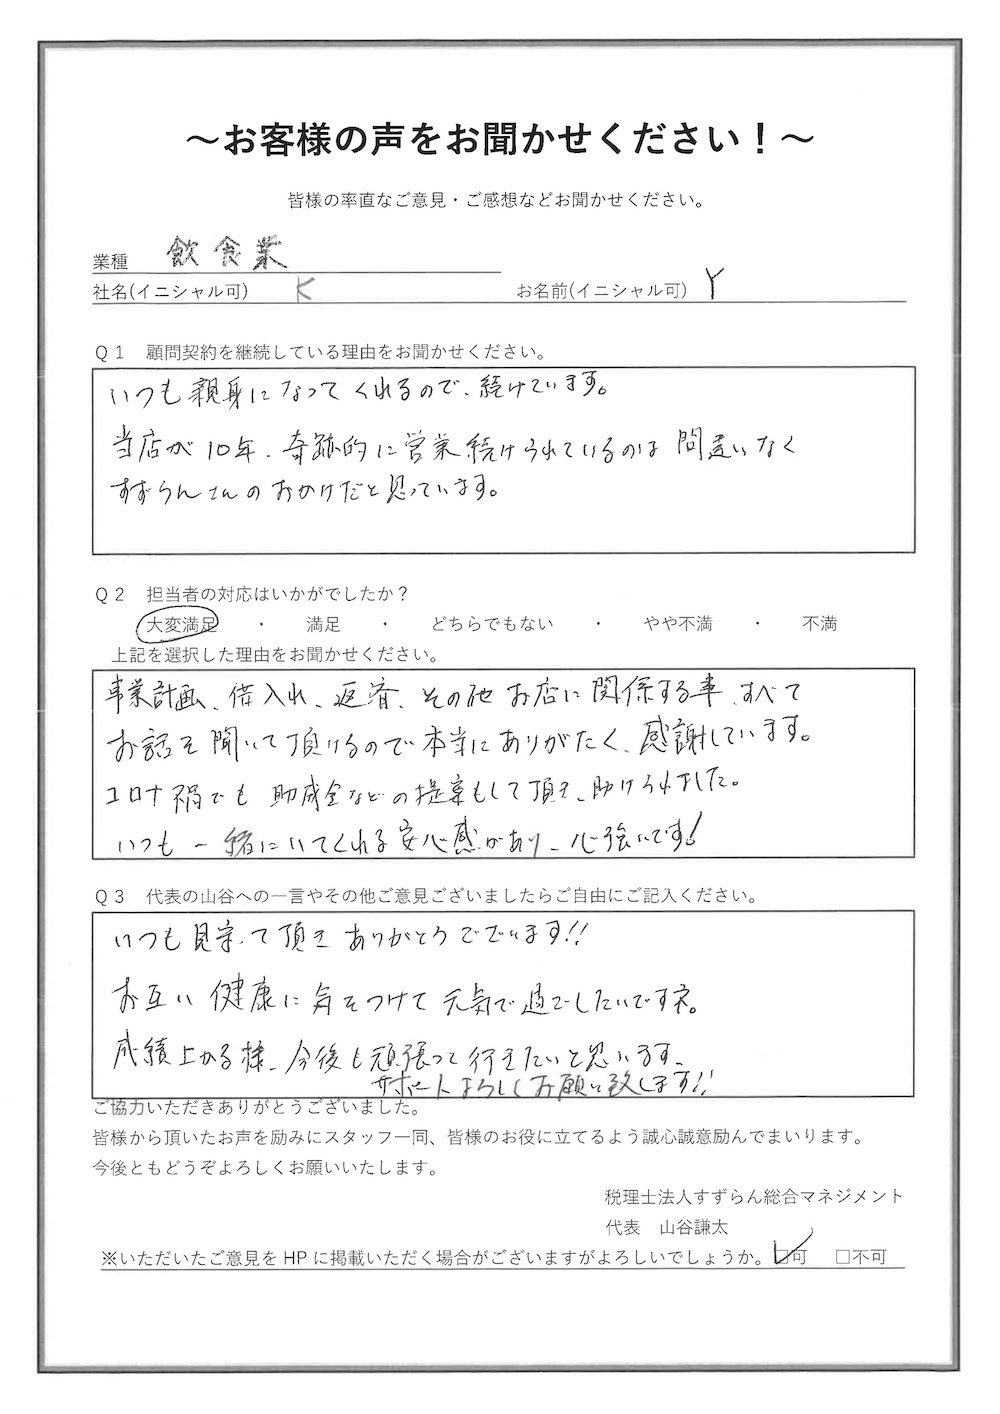 ～お客様の声をお聞かせください！～
皆様の率直なご意見・ご感想などお聞かせください。
業種 飲食業
社名(イニシャル可) K お名前(イニシャル可) Y
Q1 顧問契約を継続している理由をお聞かせください。
いつも親身になってくれるので、続けています。
当店が10年、奇跡的に営業続けられているのは間違いなく
すずらんさんのおかげだと思っています。
Q2 担当者の対応はいかがでしたか？
大変満足 ・ 満足 ・ どちらでもない ・ やや不満 ・ 不満
上記を選択した理由をお聞かせください。
事業計画、借入れ、返済、その他お店に関係する事、すべて
お話を聞いて頂けるので本当にありがたく、感謝しています。
コロナ禍でも助成金などの提案もして頂き、助けられました。
いつも一緒にいてくれる安心感があり、心強いです！
Q3 代表の山谷への一言やその他ご意見ございましたらご自由にご記入ください。
いつも見守って頂きありがとうございます!!
お互い健康に気をつけて元気で過ごしたいですネ。
成績上がる様、今後も頑張って行きたいと思います、
サポートよろしくお願い致します!!
ご協力いただきありがとうございました。
皆様から頂いたお声を励みにスタッフ一同、皆様のお役に立てるよう誠心誠意励んでまいります。
今後ともどうぞよろしくお願いいたします。
税理士法人すずらん総合マネジメント
代表 山谷謙太
※いただいたご意見をHPに掲載いただく場合がございますがよろしいでしょうか。☑可 □不可